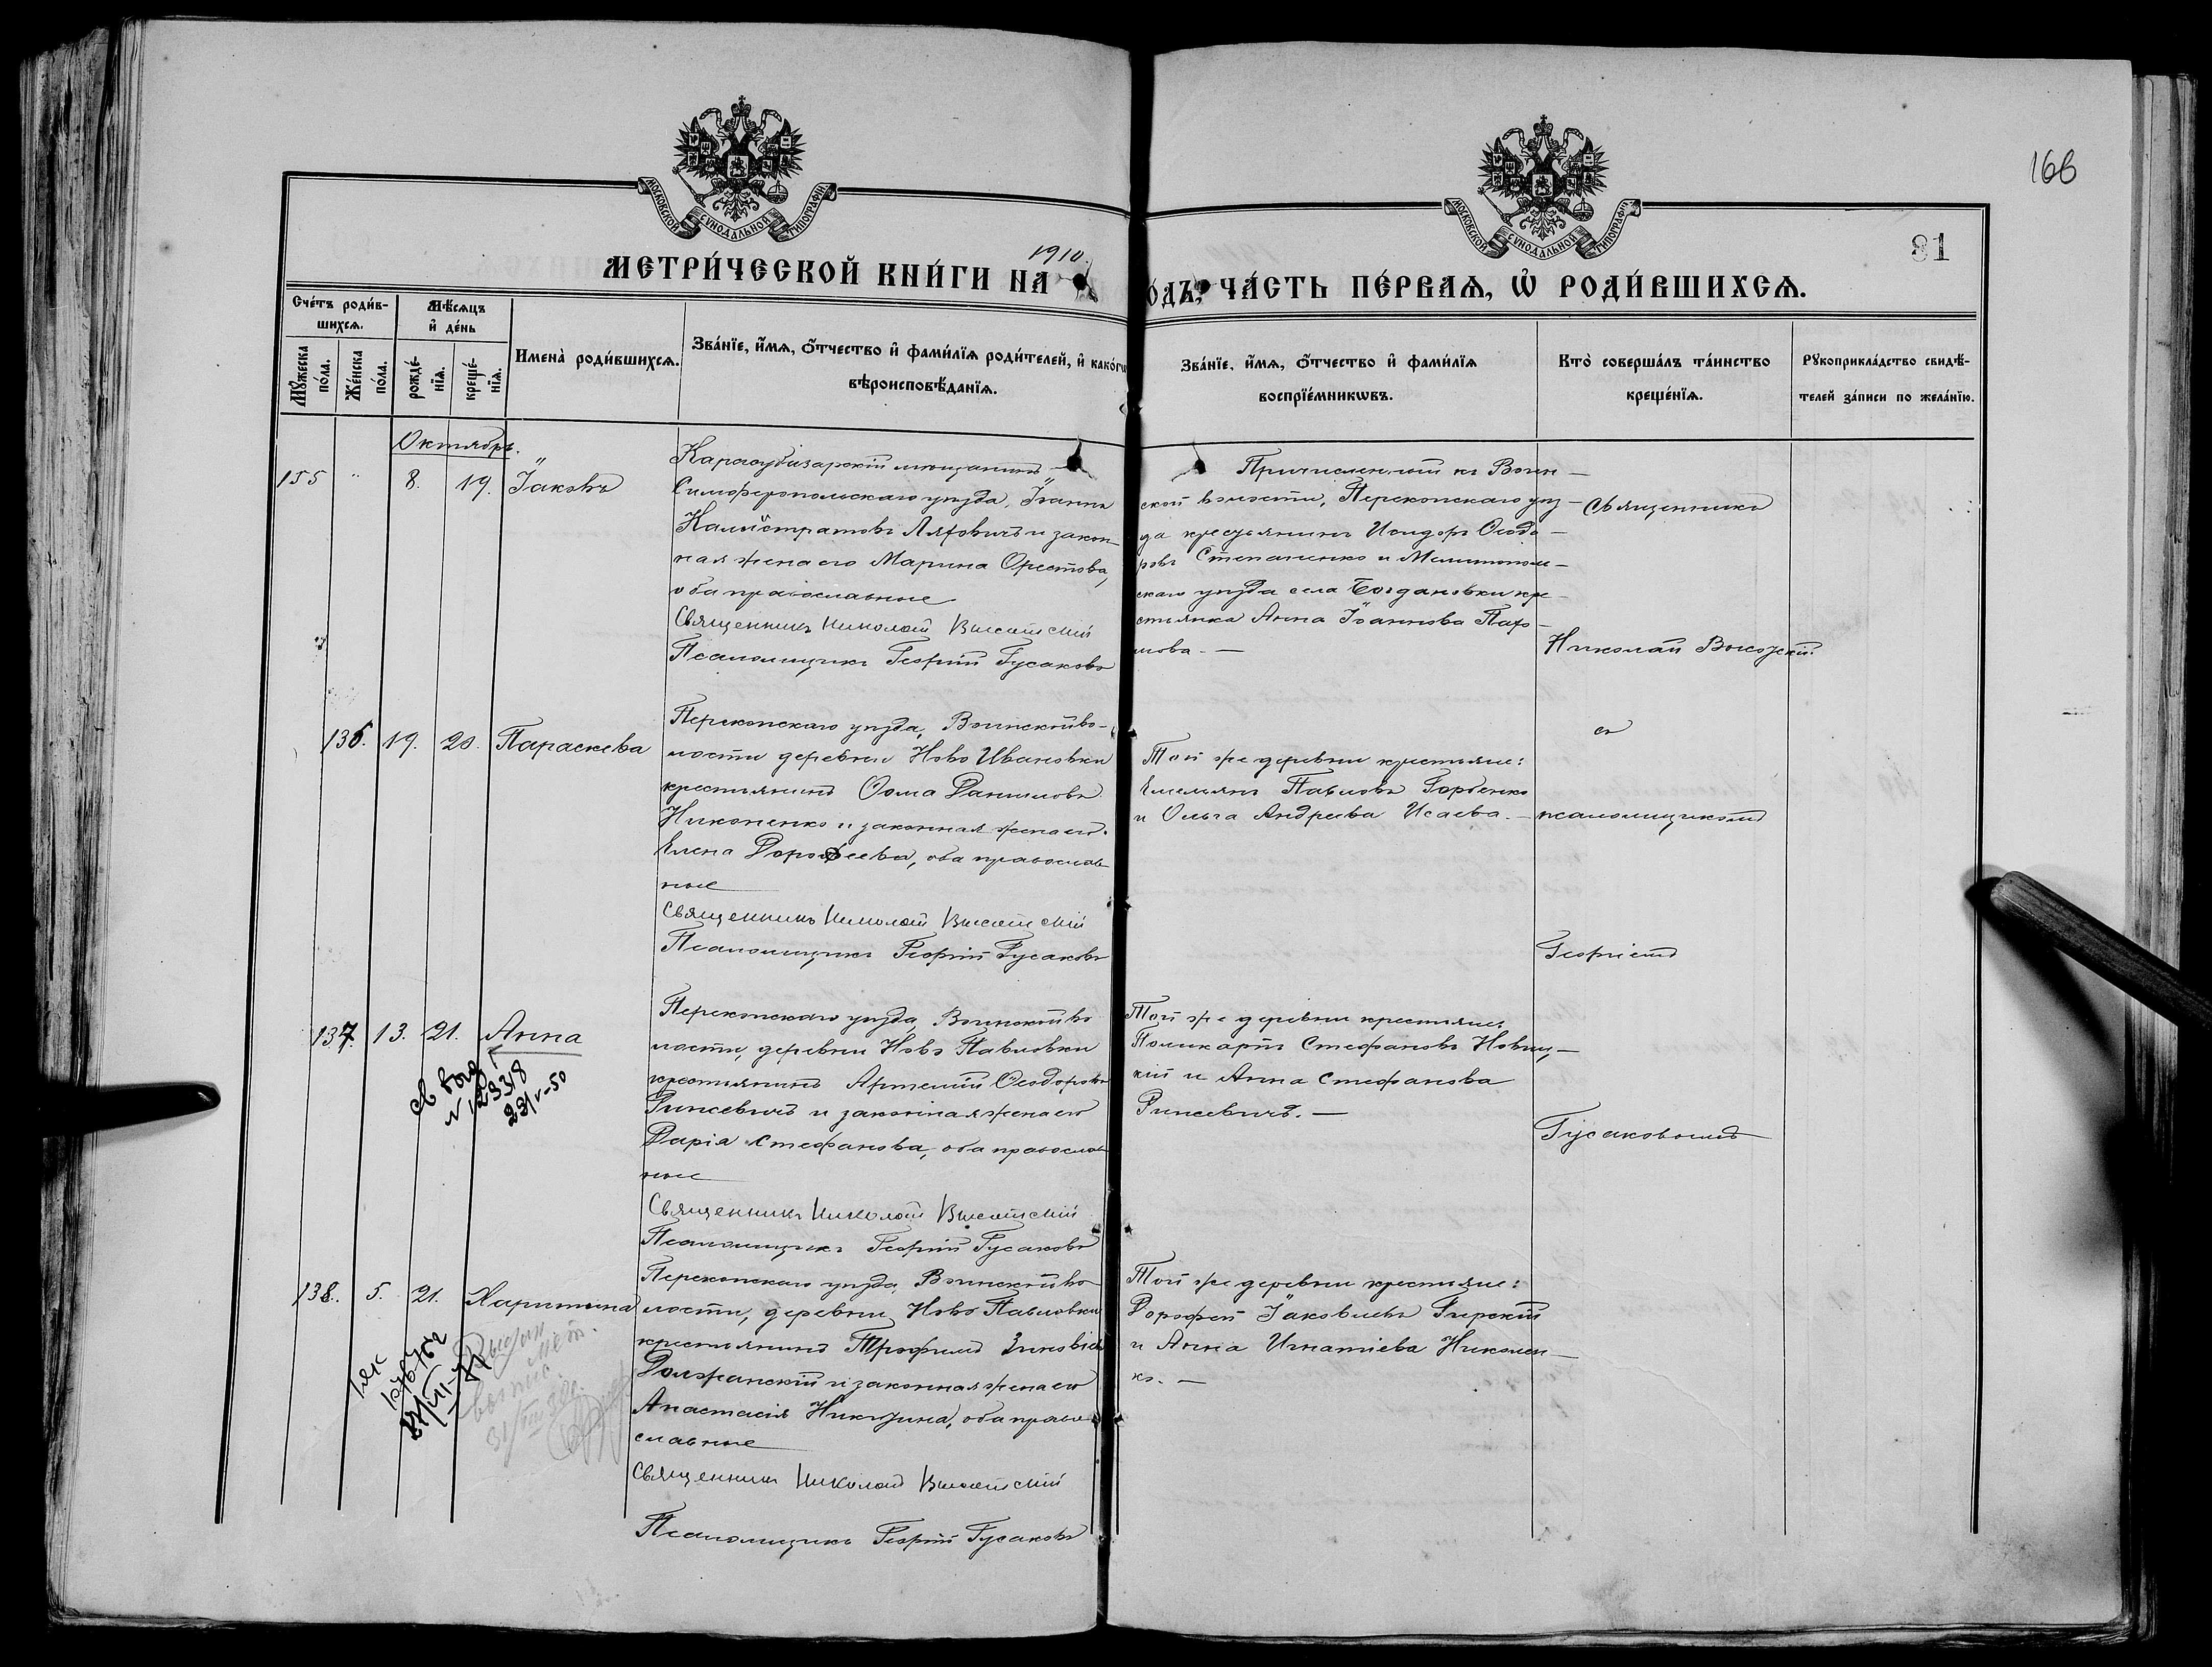 166
81
МОСКОВСКОЙ СѴНОДАЛЬНОЙ ТИПОГРАФІИ
МОСКОВСКОЙ СѴНОДАЛЬНОЙ ТИПОГРАФІИ
1910.
МЕТРИ́ЧЕСКОЙ КНИ́ГИ НА
О́ДЪ, ЧА́СТЬ ПЕ́РВАѦ, Ѡ РОДИ́ВШИХСѦ.
Сче́тъ роди́в-
шихсѧ.
Мꙋ́жеска
по́ла.
Же́нска
по́ла.
Мѣ́сѧцъ
и҆ де́нь
рожде́-
нїѧ.
креще́-
нїѧ.
Имена̀ роди́вшихсѧ.
Зва́нїе, и҆́мѧ, ѻ҆́тчество и҆ фами́лїѧ роди́телей, и҆ како́гѡ
вѣроисповѣ́данїѧ.
Зва́нїе, и҆́мѧ, ѻ҆́тчество и҆ фами́лїѧ
воспрїе́мникѡвъ.
Кто̀ соверша́лъ та́инство
креще́нїѧ.
Рꙋкоприкла́дство свидѣ́-
телей за́писи по жела́нїю.
Октябрь.
155 " 8. 19. Іаковъ
Карасубазарскій мѣщанинъ
Симферопольскаго уѣзда, Іоаннъ
Калистратовъ Ляховичъ и закон-
ная жена его Марина Орестова,
оба православные
Священникъ Николай Высотскій
Псаломщикъ Георгій Гусаковъ
Причисленный къ Воин-
ской волости, Перекопскаго уѣз-
да крестьянинъ Исидоръ Ѳеодо-
ровъ Степаненко и Мелитополь-
скаго уѣзда села Богдановки кре-
стьянка Анна Іоаннова Пахо-
мова. —
Священникъ
Николай Высотскій
136. 19. 20. Параскева
Перекопскаго уѣзда, Воинской во-
лости деревни Ново Ивановки
крестьянинъ Ѳома Даниловъ
Никоненко и законная жена его
Елена Дороѳеева, оба православ-
ные
Священникъ Николай Высотскій
Псаломщикъ Георгій Гусаковъ
Той же деревни крестьяне:
Емельянъ Павловъ Горбенко
и Ольга Андреева Исаева. —
съ
псаломщикомъ
Георгіемъ
137. 13. 21. Анна
св выд
N 12338
22/V-50
Перекопскаго уѣзда, Воинской во
лости, деревни Ново Павловки
крестьянинъ Артемій Ѳеодоровъ
Гинсевичъ и законная жена его
Дарія Стефанова, оба православ
ные
Священникъ Николай Высотскій
Псаломщикъ Георгій Гусаковъ
Той же деревни крестьяне.
Поликарпъ Стефановъ Новиц-
кій и Анна Стефанова
Гинсевичъ. —
Гусаковымъ
138. 5. 21. Харитина
107676
31/VIII
Перекопскаго уѣзда, Воинской во
лости, деревни Ново Павловки
крестьянинъ Трофимъ Зиновьевъ
Должанскій и законная жена его
Анастасія Никитина, оба право
славные
Священникъ Николай Высотскій
Псаломщикъ Георгій Гусаковъ
Той же деревни крестьяне:
Дорофей Іаковлевъ Гирскій
и Анна Игнатіева Николен-
ко. —